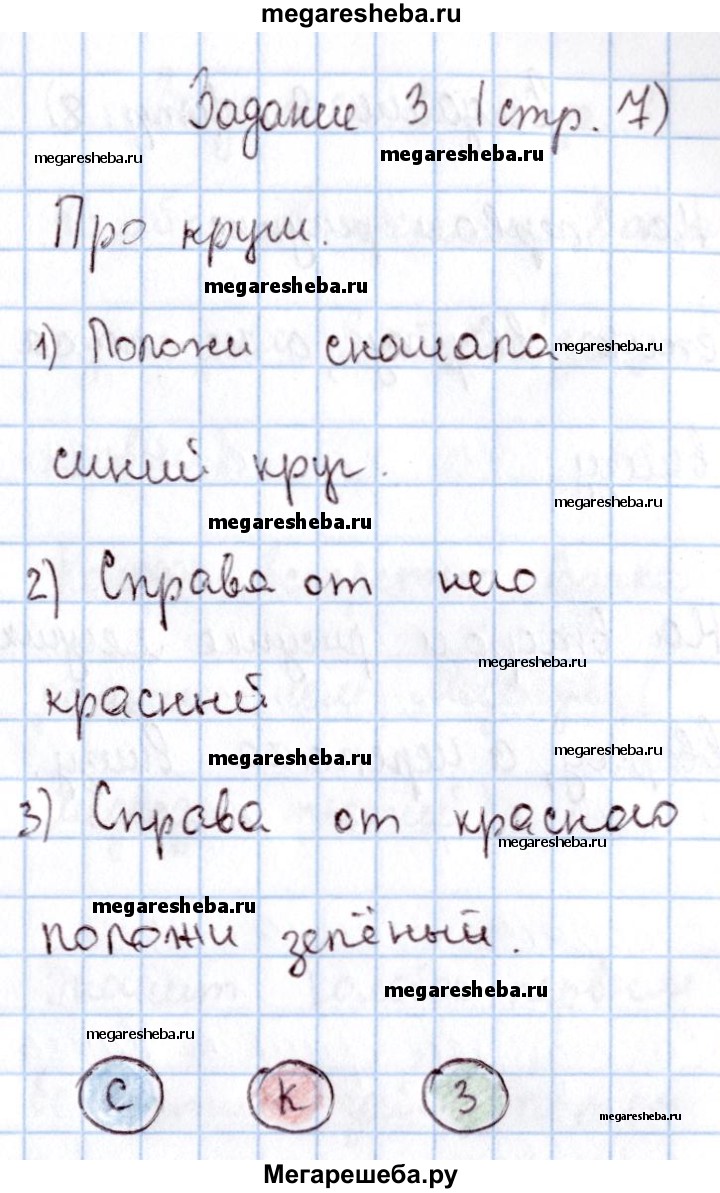 megaresheba.ru
Задание 3 (стр. 7)
megaresheba.ru
megaresheba.ru
Про круги.
megaresheba.ru
1) Положи сначала
megaresheba.ru
синий круг.
megaresheba.ru
megaresheba.ru
2) Справа от него
megaresheba.ru
красный
megaresheba.ru
megaresheba.ru
3) Справа от красного
megaresheba.ru
megaresheba.ru
положи зелёный.
megaresheba.ru
megaresheba.ru
С К З
megaresheba.ru
Мегарешеба.ру